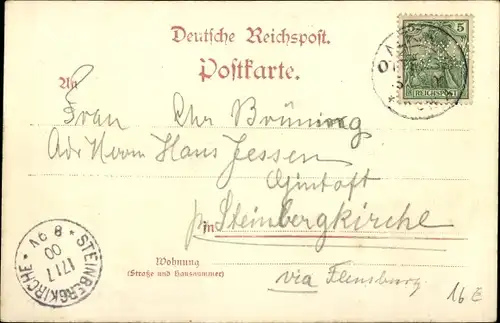 Deutsche Reichspost.
Postkarte.
5 5
REICHSPOST
An
Frau Chr Brüning
Adr Herrn Hans Jessen
Gintoft
in Steinbergkirche
Wohnung
(Straße und Hausnummer)
via Flensburg
STEINBERGKIRCHE
17 1
00
8 9 V
16 E